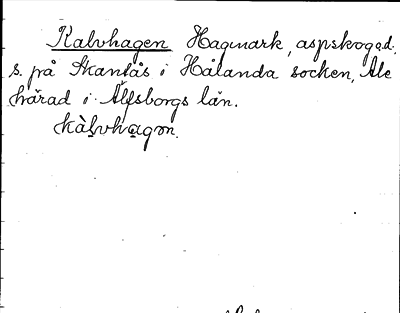 Kalvhagen Hagmark, aspskogsd.
s. på Skantås i Hålanda socken, Ale
härad i Älfsborgs län.
kàlvhagən.